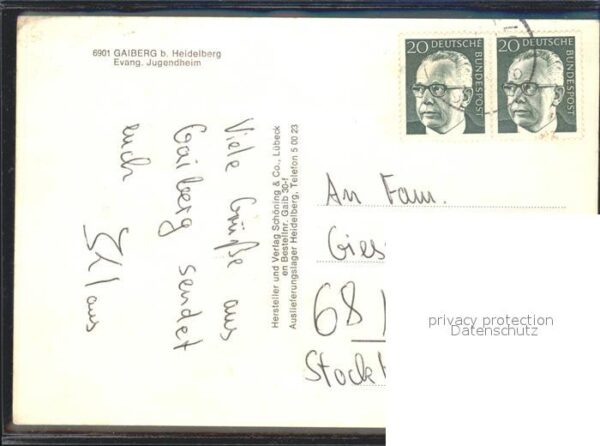 6901 GAIBERG b. Heidelberg
Evang. Jugendheim
20 DEUTSCHE BUNDESPOST
20 DEUTSCHE BUNDESPOST
Viele Grüße aus
Gaiberg sendet
euch
Klaus
Hersteller und Verlag Schöning & Co., Lübeck
en Bestellnr. Gaib 30-1
Auslieferungslager Heidelberg, Telefon 5 00 23
An Fam.
Gies
68
Stock
privacy protection
Datenschutz